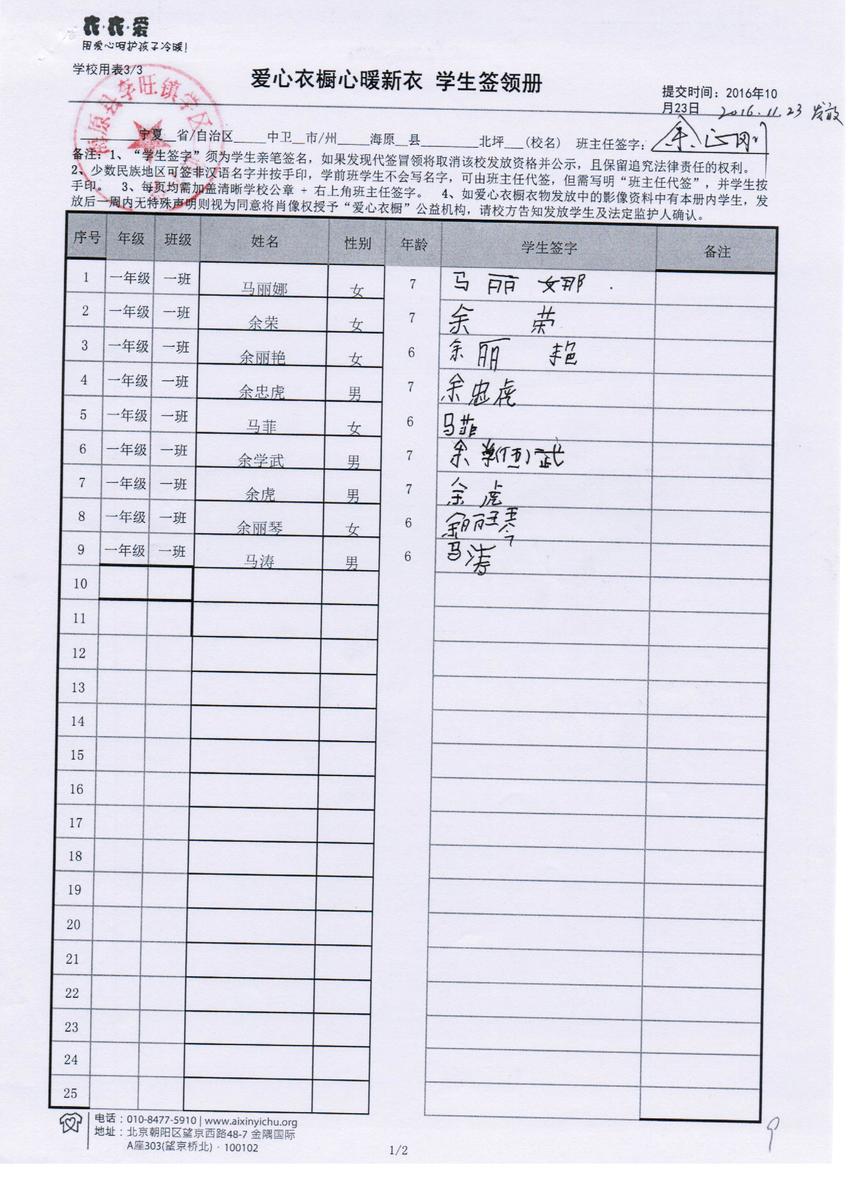 衣·衣·爱
用爱心呵护孩子冷暖!
学校用表3/3
爱心衣橱心暖新衣 学生签领册
提交时间: 2016年10
月23日 2016.11.23 发放
海原县李旺镇学区
宁夏 省/自治区 中卫 市/州 海原 县 北坪 (校名) 班主任签字:
备注: 1、“学生签字”须为学生亲笔签名, 如果发现代签冒领将取消该校发放资格并公示, 且保留追究法律责任的权利。
2、少数民族地区可签非汉语名字并按手印, 学前班学生不会写名字, 可由班主任代签, 但需写明“班主任代签”, 并学生按
手印。 3、每页均需加盖清晰学校公章 + 右上角班主任签字。 4、如爱心衣橱衣物发放中的影像资料中有本册内学生, 发
放后一周内无特殊声明则视为同意将肖像权授予“爱心衣橱”公益机构, 请校方告知发放学生及法定监护人确认。
序号 年级 班级 姓名 性别 年龄 学生签字 备注
1 一年级 一班 马丽娜 女 7 马丽娜
2 一年级 一班 余荣 女 7 余荣
3 一年级 一班 余丽艳 女 6 余丽艳
4 一年级 一班 余忠虎 男 7 余忠虎
5 一年级 一班 马菲 女 6 马菲
6 一年级 一班 余学武 男 7 余 武
7 一年级 一班 余虎 男 7 余虎
8 一年级 一班 余丽琴 女 6 余丽琴
9 一年级 一班 马涛 男 6 马涛
10
11
12
13
14
15
16
17
18
19
20
21
22
23
24
25
电话: 010-8477-5910 | www.aixinyichu.org
地址: 北京朝阳区望京西路48-7 金隅国际
A座303(望京桥北) · 100102
1/2
9